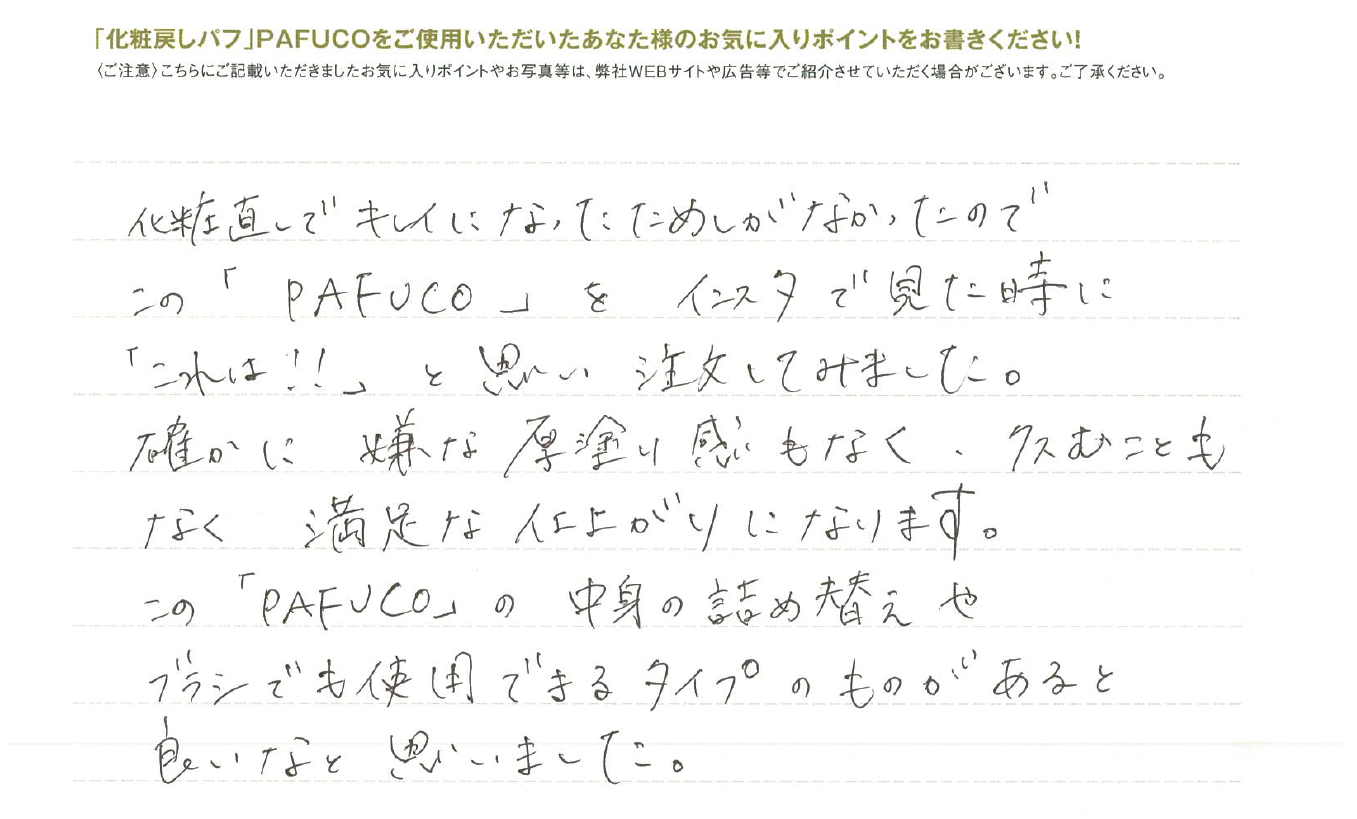 「化粧戻しパフ」PAFUCOをご使用いただいたあなた様のお気に入りポイントをお書きください!
〈ご注意〉こちらにご記載いただきましたお気に入りポイントやお写真等は、弊社WEBサイトや広告等でご紹介させていただく場合がございます。ご了承ください。
化粧直しでキレイになったためしがなかったので
この「PAFUCO」をインスタで見た時に
「これは!!」と思い注文してみました。
確かに嫌な厚塗り感もなく、クスむことも
なく満足な仕上がりになります。
この「PAFUCO」の中身の詰め替えや
ブラシでも使用できるタイプのものがあると
良いなと思いました。